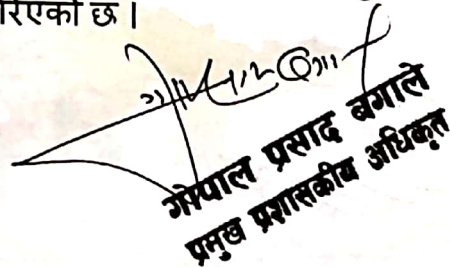 रिएको छ ।
गोपाल प्रसाद बगाले
प्रमुख प्रशासकीय अधिकृत